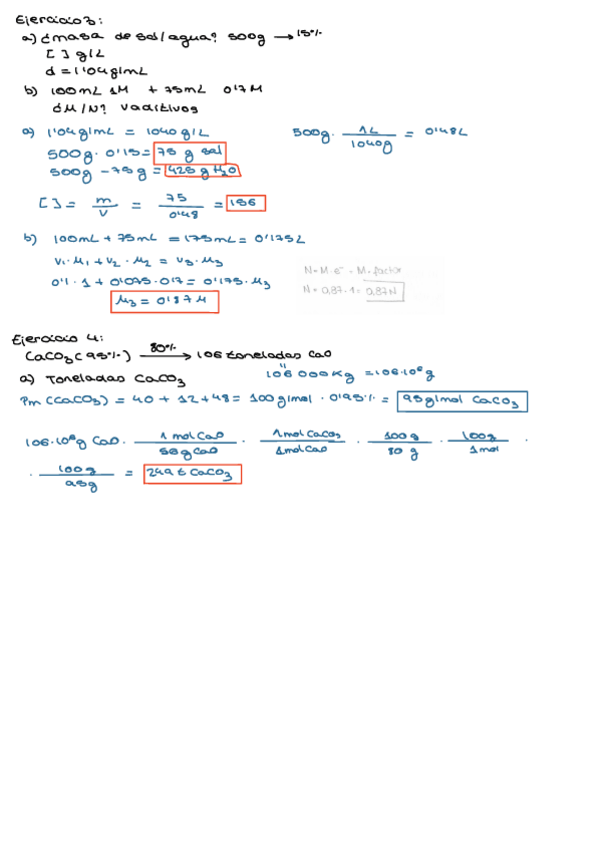 Ejercicio 3:
a) ¿masa de sal/agua? 500g → 15%
[ ] g/L
d = 1'04g/mL
b) 100mL 1M + 75mL 0'17M
dM/N? Vaditivos
a) 1'04g/mL = 1040 g/L
500g · 1L/1040g = 0'48L
500g · 0'15 = 75 g sal
500g - 75g = 425 g H₂O
[ ] = m/V = 75/0'48 = 156
b) 100mL + 75mL = 175mL = 0'175L
V₁·M₁ + V₂·M₂ = V₃·M₃
0'1 · 1 + 0'075·0'17 = 0'175·M₃
M₃ = 0'87M
N = M·e⁻ = M·factor
N = 0,87·1 = 0,87N
Ejercicio 4:
CaCO₃(95%) 80% → 106 toneladas CaO
106 000Kg = 106·10⁶g
a) Toneladas CaCO₃
Pm (CaCO₃) = 40 + 12 + 48 = 100g/mol · 0'95% = 95g/mol CaCO₃
106·10⁶g CaO · 1 mol CaO/56g CaO · 1 mol CaCO₃/1 mol CaO · 100g/80g · 100g/1mol ·
· 100g/95g = 249 t CaCO₃